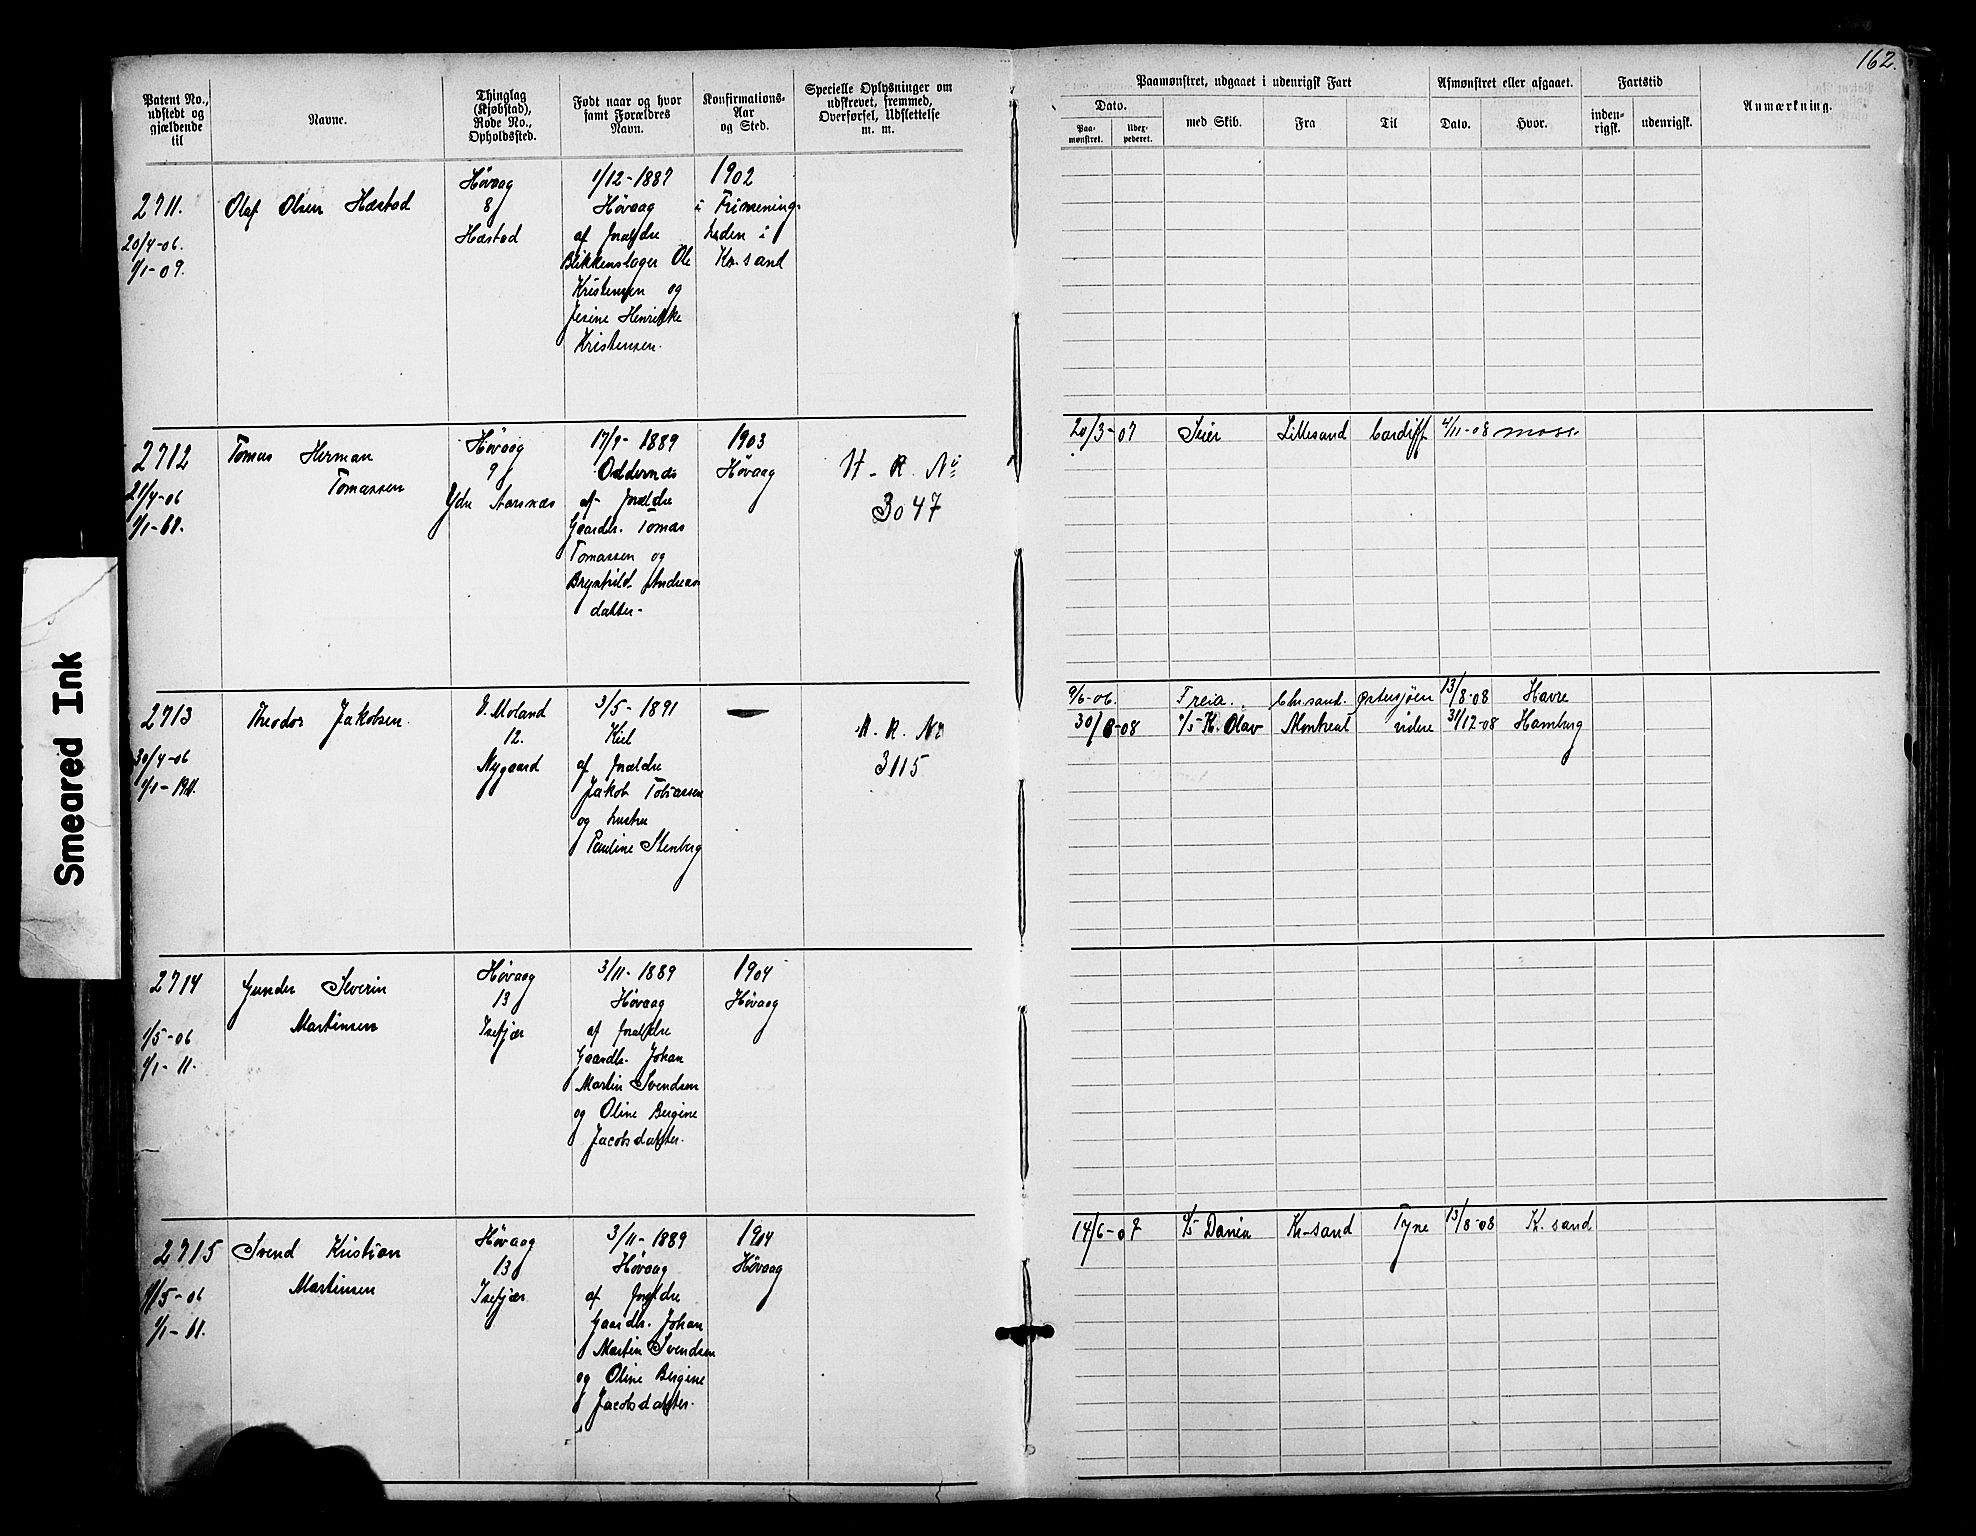 162.
Patent No., udstedt og gjældende til
Navne.
Thinglag (Kjøbstad), Rode No., Opholdssted.
Født naar og hvor samt Forældres Navn.
Konfirmations-Aar og Sted.
Specielle Oplysninger om udskrevet, fremmed, Overførsel, Udslettelse m. m.
Paamønstret, udgaaet i udenrigsk Fart
Dato.
Paa-mønstret.
Udex-pederet.
med Skib.
Fra
Til
Afmønstret eller afgaaet.
Dato.
Hvor.
Fartstid
inden-rigsk.
udenrigsk.
Anmærkning.
2711.
20/4-06.
1/1-09.
Olaf Olsen Hæstad
Høvaag
8
Hæstad
1/12-1887
Høvaag
af Forældre
Blikkenslager Ole
Kristensen og
Jesine Henrikke
Kristensen.
1902
i
i
Kr.sand
2712
21/4-06
Tomas Herman
Tomassen
Høvaag
9
Ydre Aarsnæs
17/9-1889
Oddernæs
af Forældre
Gaardbr. Tomas
Tomassen og
Brynhild Andreas
datter-
1903
Høvaag
H. R. No
3047
20/3-07
Seier
Lillesand
Cardiff
4/11-08
Moss.
2713
30/4-06
Theodor Jakobsen.
V. Moland
12.
Nygaard
3/5-1891
Kiel
af Forældre
Jakob Tobiassen
og hustru
Pauline Stenberg
H. R. No
3115
9/6-06
Freia.
Chr.sand.
Østersjøen
13/8-08
Havre
30/8-08
S/S K. Olav
Montreal
videre
31/12-08
Hamburg
2714
1/5-06
1/1-11.
Gunder Severin
Martinsen
Høvaag
13
Isefjær
3/11-1889
Høvaag
af Forældre
Gaardbr. Johan
Martin Svendsen
og Oline Bergine
Jacobsdatter.
1904
Høvaag
2715
1/5-06
1/1-11.
Svend Kristian
Martinsen
Høvaag
13
Isefjær
3/11-1889
Høvaag
af Forældre
Gaardbr. Johan
Martin Svendsen
og Oline Bergine
Jacobsdatter.
1904
Høvaag
14/6-07
S/S Dania
Kr-sand
Tyne
13/8-08
K. sand
Smeared Ink